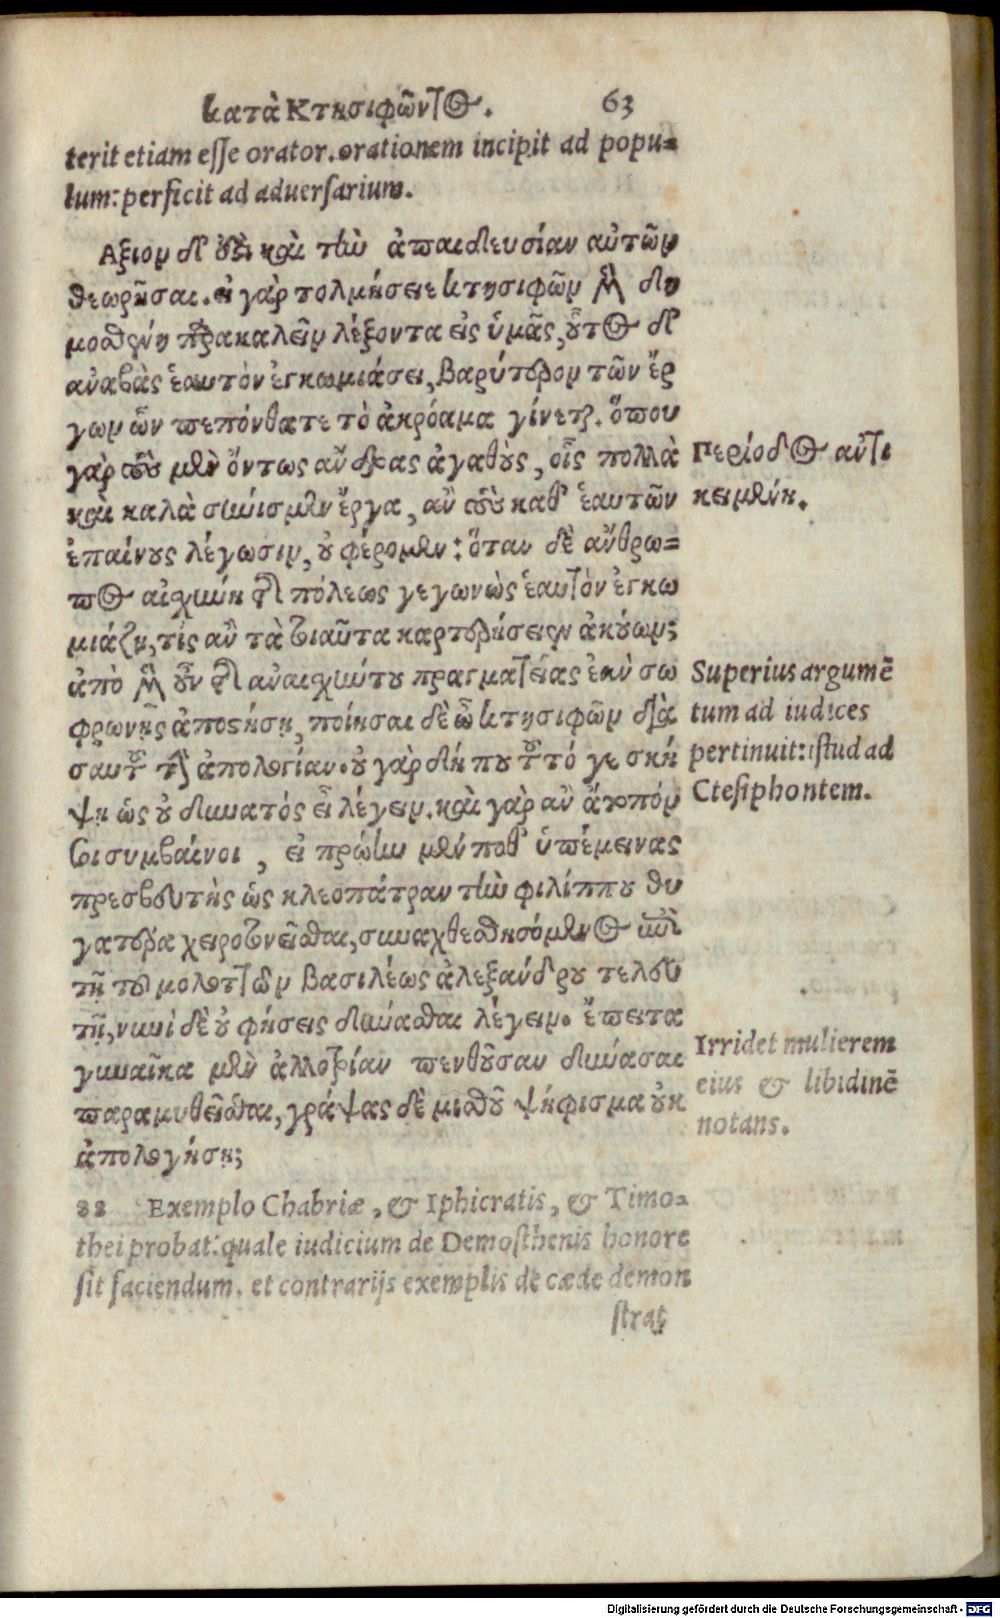 κατὰ Κτησιφῶντος. 63
terit etiam esse orator. orationem incipit ad popu=
lum: perficit ad aduersarium.
Αξιον δ' ἐςὶ καὶ τὴν ἀπαιδευσίαν αὐτῶν
θεωρῆσαι. εἰ γὰρ τολμήσειε κτησιφῶν μὲν δη
μοσθένη παρακαλεῖν λέξοντα εἰς ὑμᾶς, οὗτος δ'
αὐαβὰς ἑαυτὸν ἐγκωμιάσει, βαρύτερον τῶν ἔρ
γων ὧν πεπόνθατε τὸ ἀκρόαμα γίνεται. ὅπου
γὰρ τοὺς μὲν ὄντως αὔδρας ἀγαθοὺς, οἷς πολλὰ
καὶ καλὰ σύνισμεν ἔργα, αὒ τοὺς καθ' ἑαυτῶν
ἐπαίνους λέγωσιν, οὐ φέρομεν: ὅταν δὲ αὔθρω=
πος αἰσχύνη τῆς πόλεως γεγωνὼς ἑαυτὸν ἐγκω
μιάζῃ, τίς αὒ τὰ τοιαῦτα καρτερήσειεν ἀκούων;
ἀπὸ μὲν οὖν τῆς αὐαισχύντου πραγματείας ἐὰν σω
φρωνῇς ἀποςήσῃ, ποίησαι δὲ ὦ κτησιφῶν διὰ
σαυτοῦ τὴν ἀπολογίαν. οὐ γὰρ δή που τοῦτό γε σκή
ψῃ ὡς οὐ δυνατὸς εἶ λέγειν. καὶ γὰρ αὒ ἄτοπόν
σοι συμβαίνοι, εἰ πρώην μέν ποθ' ὑπέμεινας
πρεσβευτὴς ὡς κλεοπάτραν τὴν φιλίππου θυ
γατέρα χειροτονεῖσθαι, συναχθεσθησόμενος ἐπὶ
τῇ τοῦ μολοττῶν βασιλέως ἀλεξαύδρου τελευ
τῇ, νυνὶ δὲ οὐ φήσεις δύνασθαι λέγειν. ἔπειτα
γυναῖκα μὲν ἀλλοτρίαν πενθοῦσαν δύνασαι
παραμυθεῖσθαι, γράψας δὲ μισθοῦ ψήφισμα οὐκ
ἀπολογήσῃ;
88 Exemplo Chabriæ, & Iphicratis, & Timo=
thei probat: quale iudicium de Demosthenis honore
sit faciendum. et contrarijs exemplis de cæde demon
strat
Περίοδος αὐτι
κειμένη.
Superius argumē
tum ad iudices
pertinuit: istud ad
Ctesiphontem.
Irridet mulierem
eius & libidinē
notans.
Digitalisierung gefördert durch die Deutsche Forschungsgemeinschaft - DFG